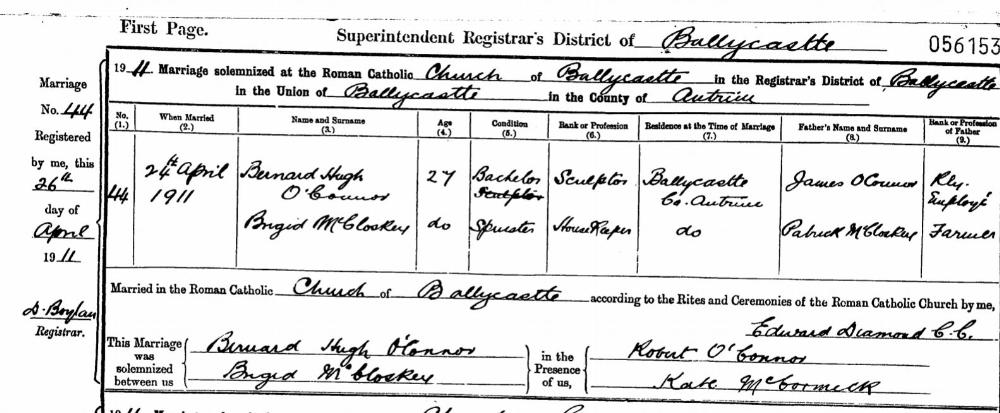 First Page.
Superintendent Registrar's District of Ballycastle
056153
Marriage
No. 44
Registered
by me, this
26th
day of
April
1911
D. Boylan
Registrar.
1911. Marriage solemnized at the Roman Catholic Church of Ballycastle in the Registrar's District of Ballycastle
in the Union of Ballycastle in the County of Antrim
No. (1.) When Married (2.) Name and Surname (3.) Age (4.) Condition (5.) Rank or Profession (6.) Residence at the Time of Marriage (7.) Father's Name and Surname (8.) Rank or Profession of Father (9.)
44 24th April 1911 Bernard Hugh O'Connor 27 Bachelor Sculptor Sculptor Ballycastle Co. Antrim James O'Connor Rly. Employé
Brigid McCloskey do Spinster House Keeper do Patrick McCloskey Farmer
Married in the Roman Catholic Church of Ballycastle according to the Rites and Ceremonies of the Roman Catholic Church by me,
Edward Diamond C.C.
This Marriage was solemnized between us
Bernard Hugh O'Connor
Brigid McCloskey
in the Presence of us,
Robert O'Connor
Kate McCormick